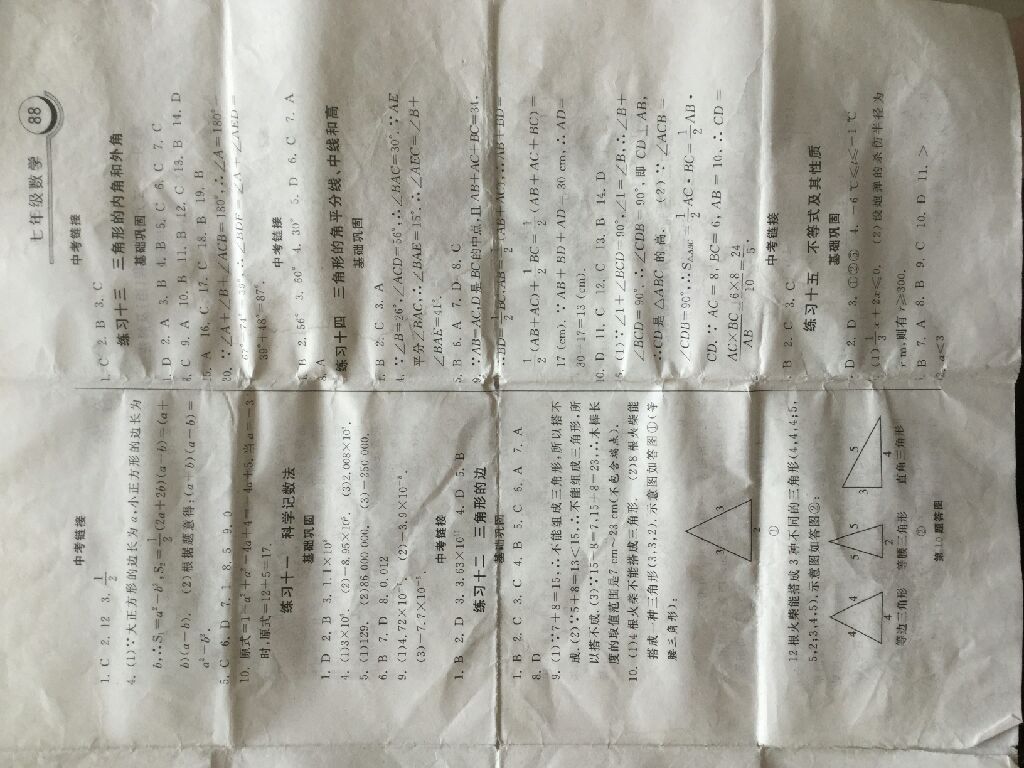 七年级数学 88
中考链接
1. C 2. 12 3. 1/2
4. (1)∵大正方形的边长为a,小正方形的边长为
b,∴S₁=a²-b²,S₂=1/2(2a+2b)(a-b)=(a+
b)(a-b). (2)根据题意得:(a+b)(a-b)=
a²-b².
5. C 6. D 7. 1 8. 5 9. 0
10. 原式=1-a²+a²-4a+4=-4a+5.当a=-3
时,原式=12+5=17.
练习十一 科学记数法
基础巩固
1. D 2. B 3. 1.1×10⁵
5. (1)129. (2)86 000 000. (3)-250 000.
6. B 7. D 8. 0.012
中考链接
4. D 5. B
练习十二 三角形的边
基础巩固
1. B 2. C 3. C 4. B 5. C 6. A 7. A
8. D
9. (1)∵7+8=15,∴不能组成三角形,所以搭不
成.(2)∵5+8=13<15,∴不能组成三角形,所
以搭不成.(3)∵15-8=7,15+8=23,∴木棒长
度的取值范围是7 cm~23 cm(不包含端点).
10. (1)4根火柴不能搭成三角形. (2)8根火柴能
搭成一种三角形(3,3,2).示意图如答图①(等
腰三角形);
3 3
2
①
12根火柴能搭成3种不同的三角形(4,4,4;5,
5,2;3,4,5).示意图如答图②:
4 4 4
5 5 2
3 5 4
等边三角形 等腰三角形 直角三角形
②
第10题答图
中考链接
1. C 2. B 3. C
练习十三 三角形的内角和外角
基础巩固
1. D 2. A 3. B 4. B 5. C 6. C 7. C
8. C 9. A 10. B 11. B 12. C 13. B 14. D
15. A 16. C 17. C 18. B 19. B
20. ∵∠A+∠B+∠ACB=180°,∴∠A=180°
39°+48°=87°.
中考链接
1. B 2. 156° 3. 60° 4. 30° 5. D 6. C 7. A
8. A
练习十四 三角形的角平分线、中线和高
基础巩固
1. B 2. C 3. A
4. ∵∠B=26°,∠ACD=56°,∴∠BAC=30°.∵AE
平分∠BAC,∴∠BAE=15°.∴∠AEC=∠B+
∠BAE=41°.
5. B 6. A 7. D 8. C
9. ∵AB=AC,D是BC的中点,且AB+AC+BC=34,
1/2(AB+AC)+1/2BC=1/2(AB+AC+BC)=
17 (cm).∵AB+BD+AD=30 cm,∴AD=
30-17=13 (cm).
10. D 11. C 12. C 13. B 14. D
(1)∵∠1+∠BCD=90°,∠1=∠B,∴∠B+
∠BCD=90°,∴∠CDB=90°,即CD⊥AB,
∴CD是△ABC的高. (2)∵∠ACB=
∠CDB=90°,∴S△ABC=1/2AC·BC=1/2AB·
CD.∵AC=8,BC=6,AB=10,∴CD=
AC×BC/AB=6×8/10=24/5.
中考链接
B 2. C 3. C
练习十五 不等式及其性质
基础巩固
D 2. D 4. -6℃≤t≤-1℃
(1)1/3x+2x≤0. (2)设炮弹的杀伤半径为
r m,则有r≥300.
B 7. A 8. B 9. C 10. D 11. >